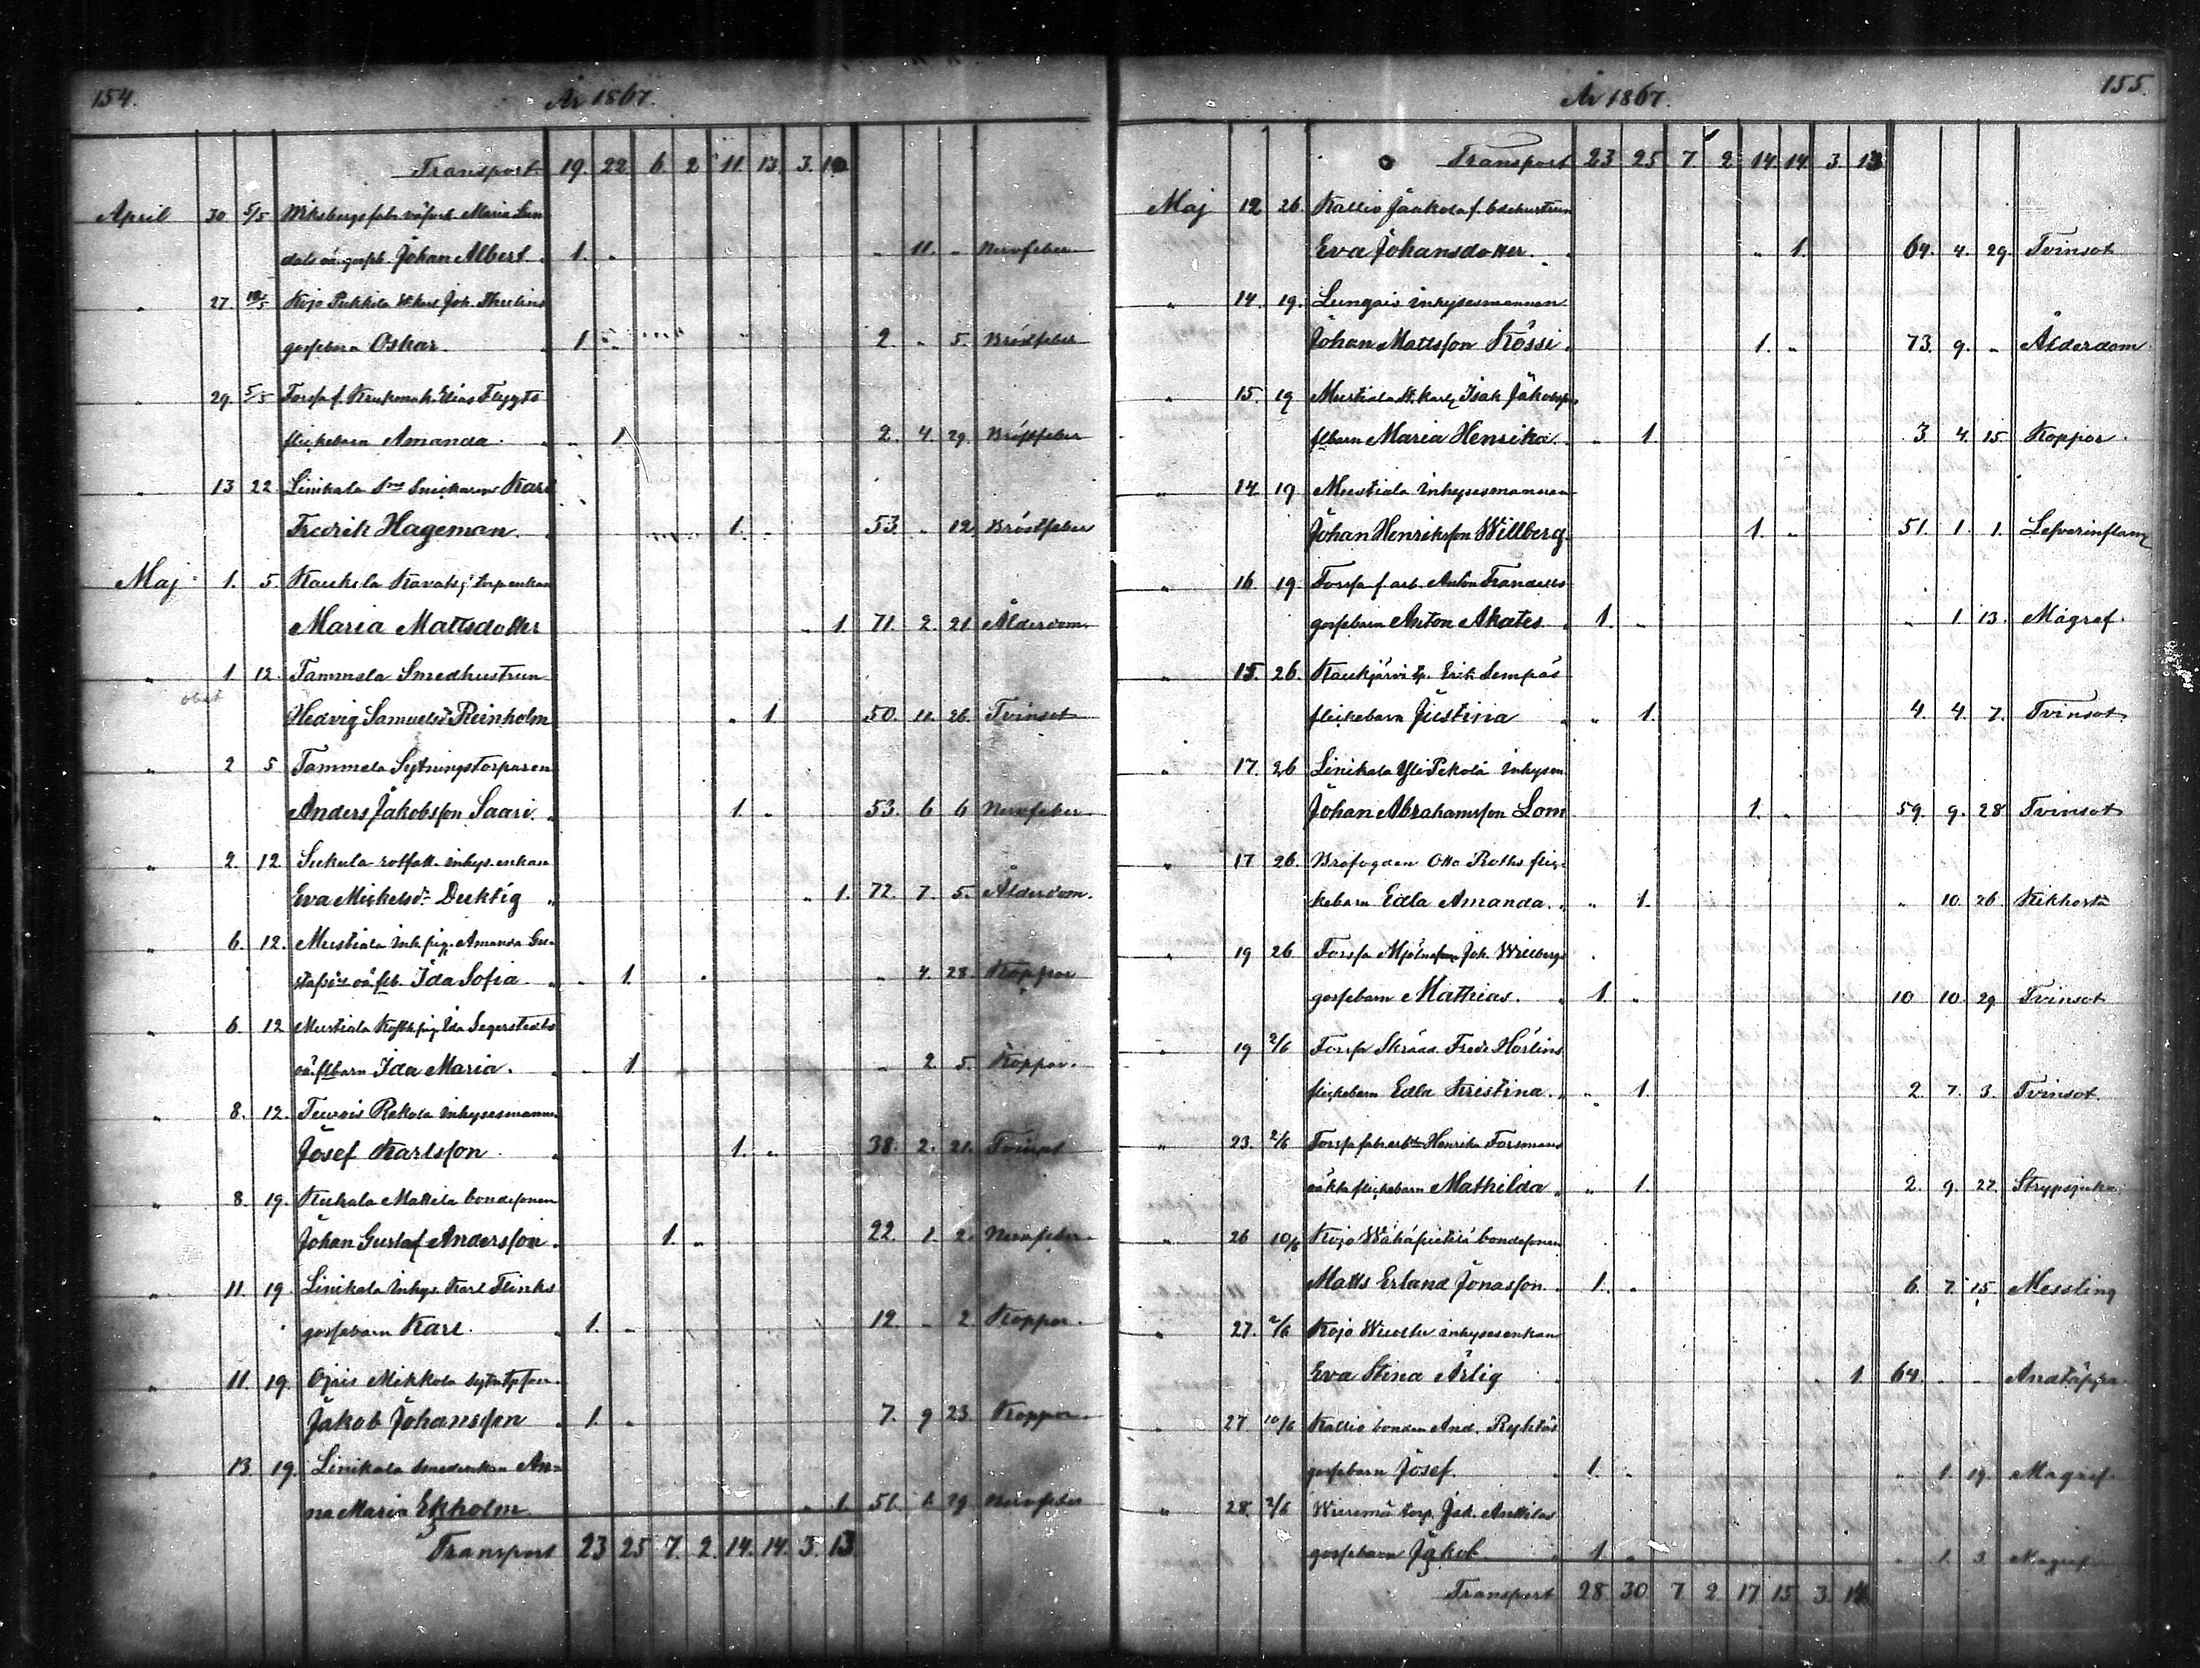 154.
År 1867.
Transport 19. 22 6. 2 11. 13 3. 10
April 30 5/5 Wiksbergs fabr
Johan Albert 1. " " 11. " Nervfeber
" 27. Kojo Pekkila Joh. Thelins
gossebarn Oskar. 1. 2 " 5. Bröstfeber
" 29 5/5 Forssa f. Elias Flygts
flickebarn Amanda. " 1 2. 4. 29. Bröstfeber
" 13 22 Linikala Snickaren Karl
Fredrik Hageman. 1. " 53. " 12 Bröstfeber
Maj 1. 5. Kaukola torpenkan
Maria Mattsdotter " 1. 71. 2. 21. Ålderdom.
" 1 12. Tammela Smedhustrun
obet
Hedvig Samuelsdr Reinholm " 1. 50. 11. 26. Tvinsot
" 2 5 Tammela Sytningstorparen
Anders Jakobsson Saari. 1. " 53. 6 6 Nervfeber.
" 2. 12. Sukula rotfatt. inhys. enkan
Eva Mickelsdr Duktig " 1. 72. 7. 5. Ålderdom.
" 6. 12. Mustiala inh pig. Amanda Gu-
stafsdr oä. flb. Ida Sofia. " 1. " 4. 28. Koppor
" 6. 12 Mustiala Ida Segerstedts
oä. flbarn Ida Maria. " 1. " 2. 5. Koppor.
" 8. 12. Teuvois Rekola inhysesmannen
Josef Karlsson. 1. " 38. 2. 21. Tvinsot
" 8. 19. Kuhala Mattila bondesonen
Johan Gustaf Andersson. 1. " 22. 1. 2. Nervfeber.
" 11 19. Linikala inhys. Karl Flinks
gossebarn Karl. 1. " 12. " 2 Koppor.
" 11. 19. Ojais Mikkola
Jakob Johansson 1. " 7. 9 23. Koppor.
" 13. 19. Linikala smedenkan An-
na Maria Ekholm " 1. 51. 1. 29 Nervfeber
Transport 23 25. 7. 2. 14. 14. 3. 13.
155.
År 1867.
Transport 23 25. 7. 2. 14. 14. 3. 13
Maj 12 26. Kallio Jaakola f. bdehustrun
Eva Johansdotter. " 1. 64. 4. 29. Tvinsot
" 14. 19. Lungois inhysesmannen
Johan Mattsson Kössi. 1. " 73. 9. " Ålderdom.
" 15. 19 Mustiala St. karl Isak Jakobsson
flbarn Maria Henrika. " 1. 3. 4. 15. Koppor.
" 14. 19 Mustiala inhysesmannen
Johan Henriksson Willberg. 1. " 51. 1. 1. Lefverinflam
" 16. 19. Forssa f. arb. Anton Frandells
gossebarn Anton Akates. 1. " " 1 13. Magref.
" 15. 26. Kaukjärvi tp. Erik Sempäs
flickebarn Justina " 1. 4. 4. 7. Tvinsot
" 17. 26 Linikala Yli Pekola inhysm
Johan Abrahamsson Lom 1. " 59. 9. 28 Tvinsot
" 17 26. Brofogden Otto Roths flic-
kebarn Edla Amanda. " 1. " 10. 26. Kikhosta
" 19 26 Forssa Joh. Willbergs
gossebarn Mathias. 1. " 10 10. 29. Tvinsot
" 19 2/6 Forssa Skrädd. Fredr Hörlins
flickebarn Edla Kristina. " 1. 2. 7. 3. Tvinsot.
" 23. 2/6 Forssa Henrika Forsmans
oäkta flickebarn Mathilda. " 1. 2. 9. 27. Strypsjuka
" 26 10/6 Kojo Wähäpietilä bondesonen
Matts Erland Jonasson. 1. " 6. 7. 15. Messling
" 27. 2/6 Kojo inhysesenkan
Eva Stina Ärlig " 1. 64. " " Andtäppa.
" 27. 10/6 Kallio bonden And.
gossebarn Josef. 1. " " 1. 19. Magref.
" 28. 2/6 torp. Jak. Anttilas
gossebarn Jakob. 1. " " 1. 3. Magref
Transport 28. 30 7. 2. 17 15. 3. 14